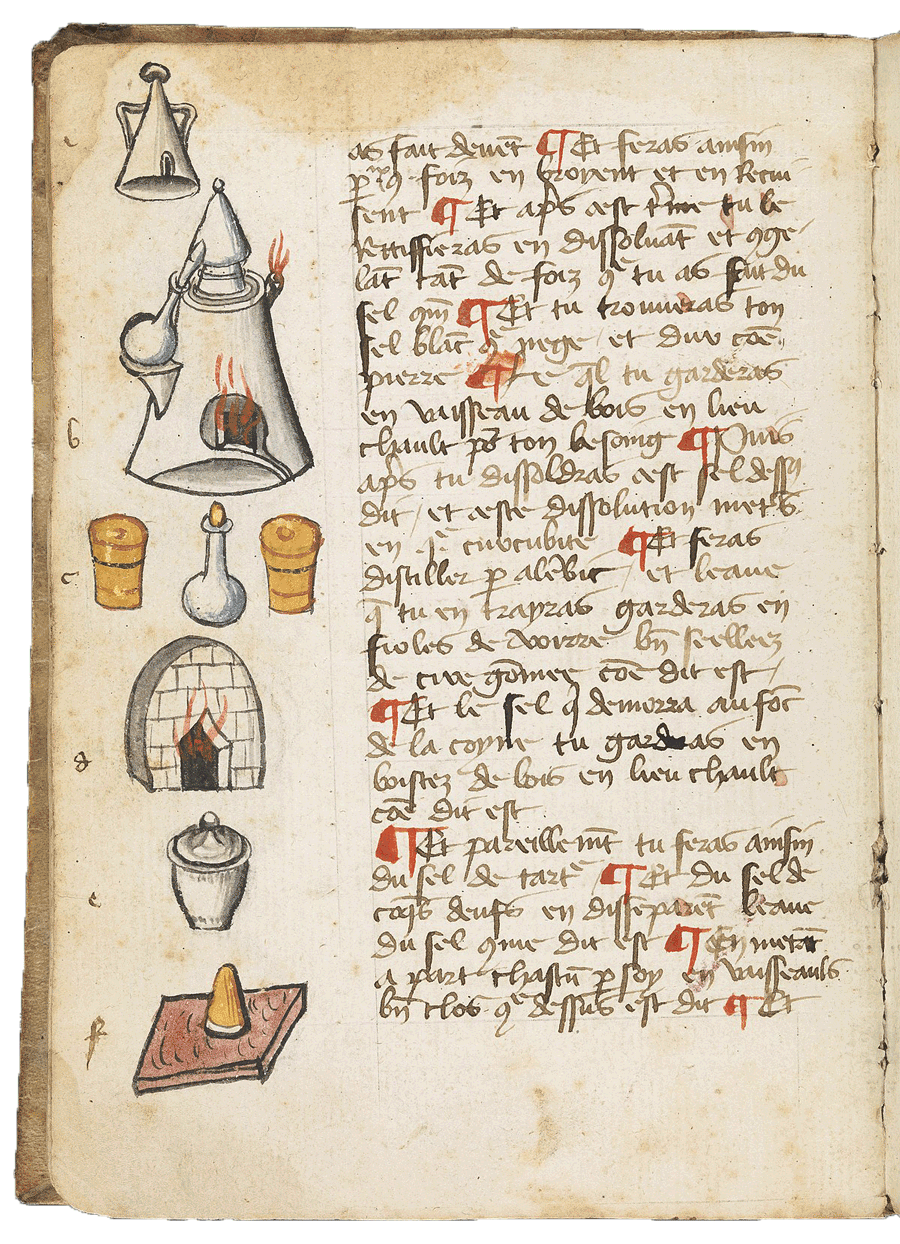 as fait devēt ¶ Et feras ainsin
foiz en broyent et en
sent ¶ Et ap̄s cest t̄me tu le
Rettiffieras en dissoluāt et ꝯge-
lāt tāt de foiz q̄ tu as fait du
sel ¶ Et tu trouueras ton
sel blāc q̄ nege et dur cōe
pierre ¶ Le q̄l tu garderas
en vaisseau de bois en lieu
chault po ton besoing ¶ Puis
ap̄s tu dissoldras cest sel dess
dit / et ceste dissolution mets
en cucubite ¶ Et feras
distiller p alēbic / et leaue
q̄ tu en trayras garderas en
fioles de voirre bn̄ seelleez
de cire gōmee cōe dit est /
¶ Et le sel q̄ demorra au fōc
de la coyne tu garderas en
boistez de bois en lieu chault
cōe dit est
¶ Et pareillemt̄ tu feras ainsin
du sel de tartē ¶ Et du sel de
coq̄s deufs en disseparēt leaue
du sel ꝯme dit est ¶ En metāt
a part chascū p soy en vaisseauls
bn̄ clos q̄ dessus est dit ¶ Et
b
c
d
e
f